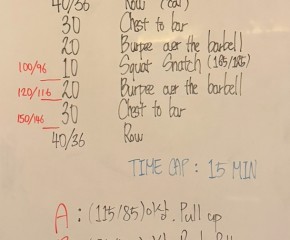 40/36 Row (cal)
30 Chest to bar
20 Burpee over the barbell
100/96 10 Squat Snatch
120/116 20 Burpee over the barbell
150/146 30 Chest to bar
40/36 Row
TIME CAP : 15 MIN
A : (115/85)이상. Pull up